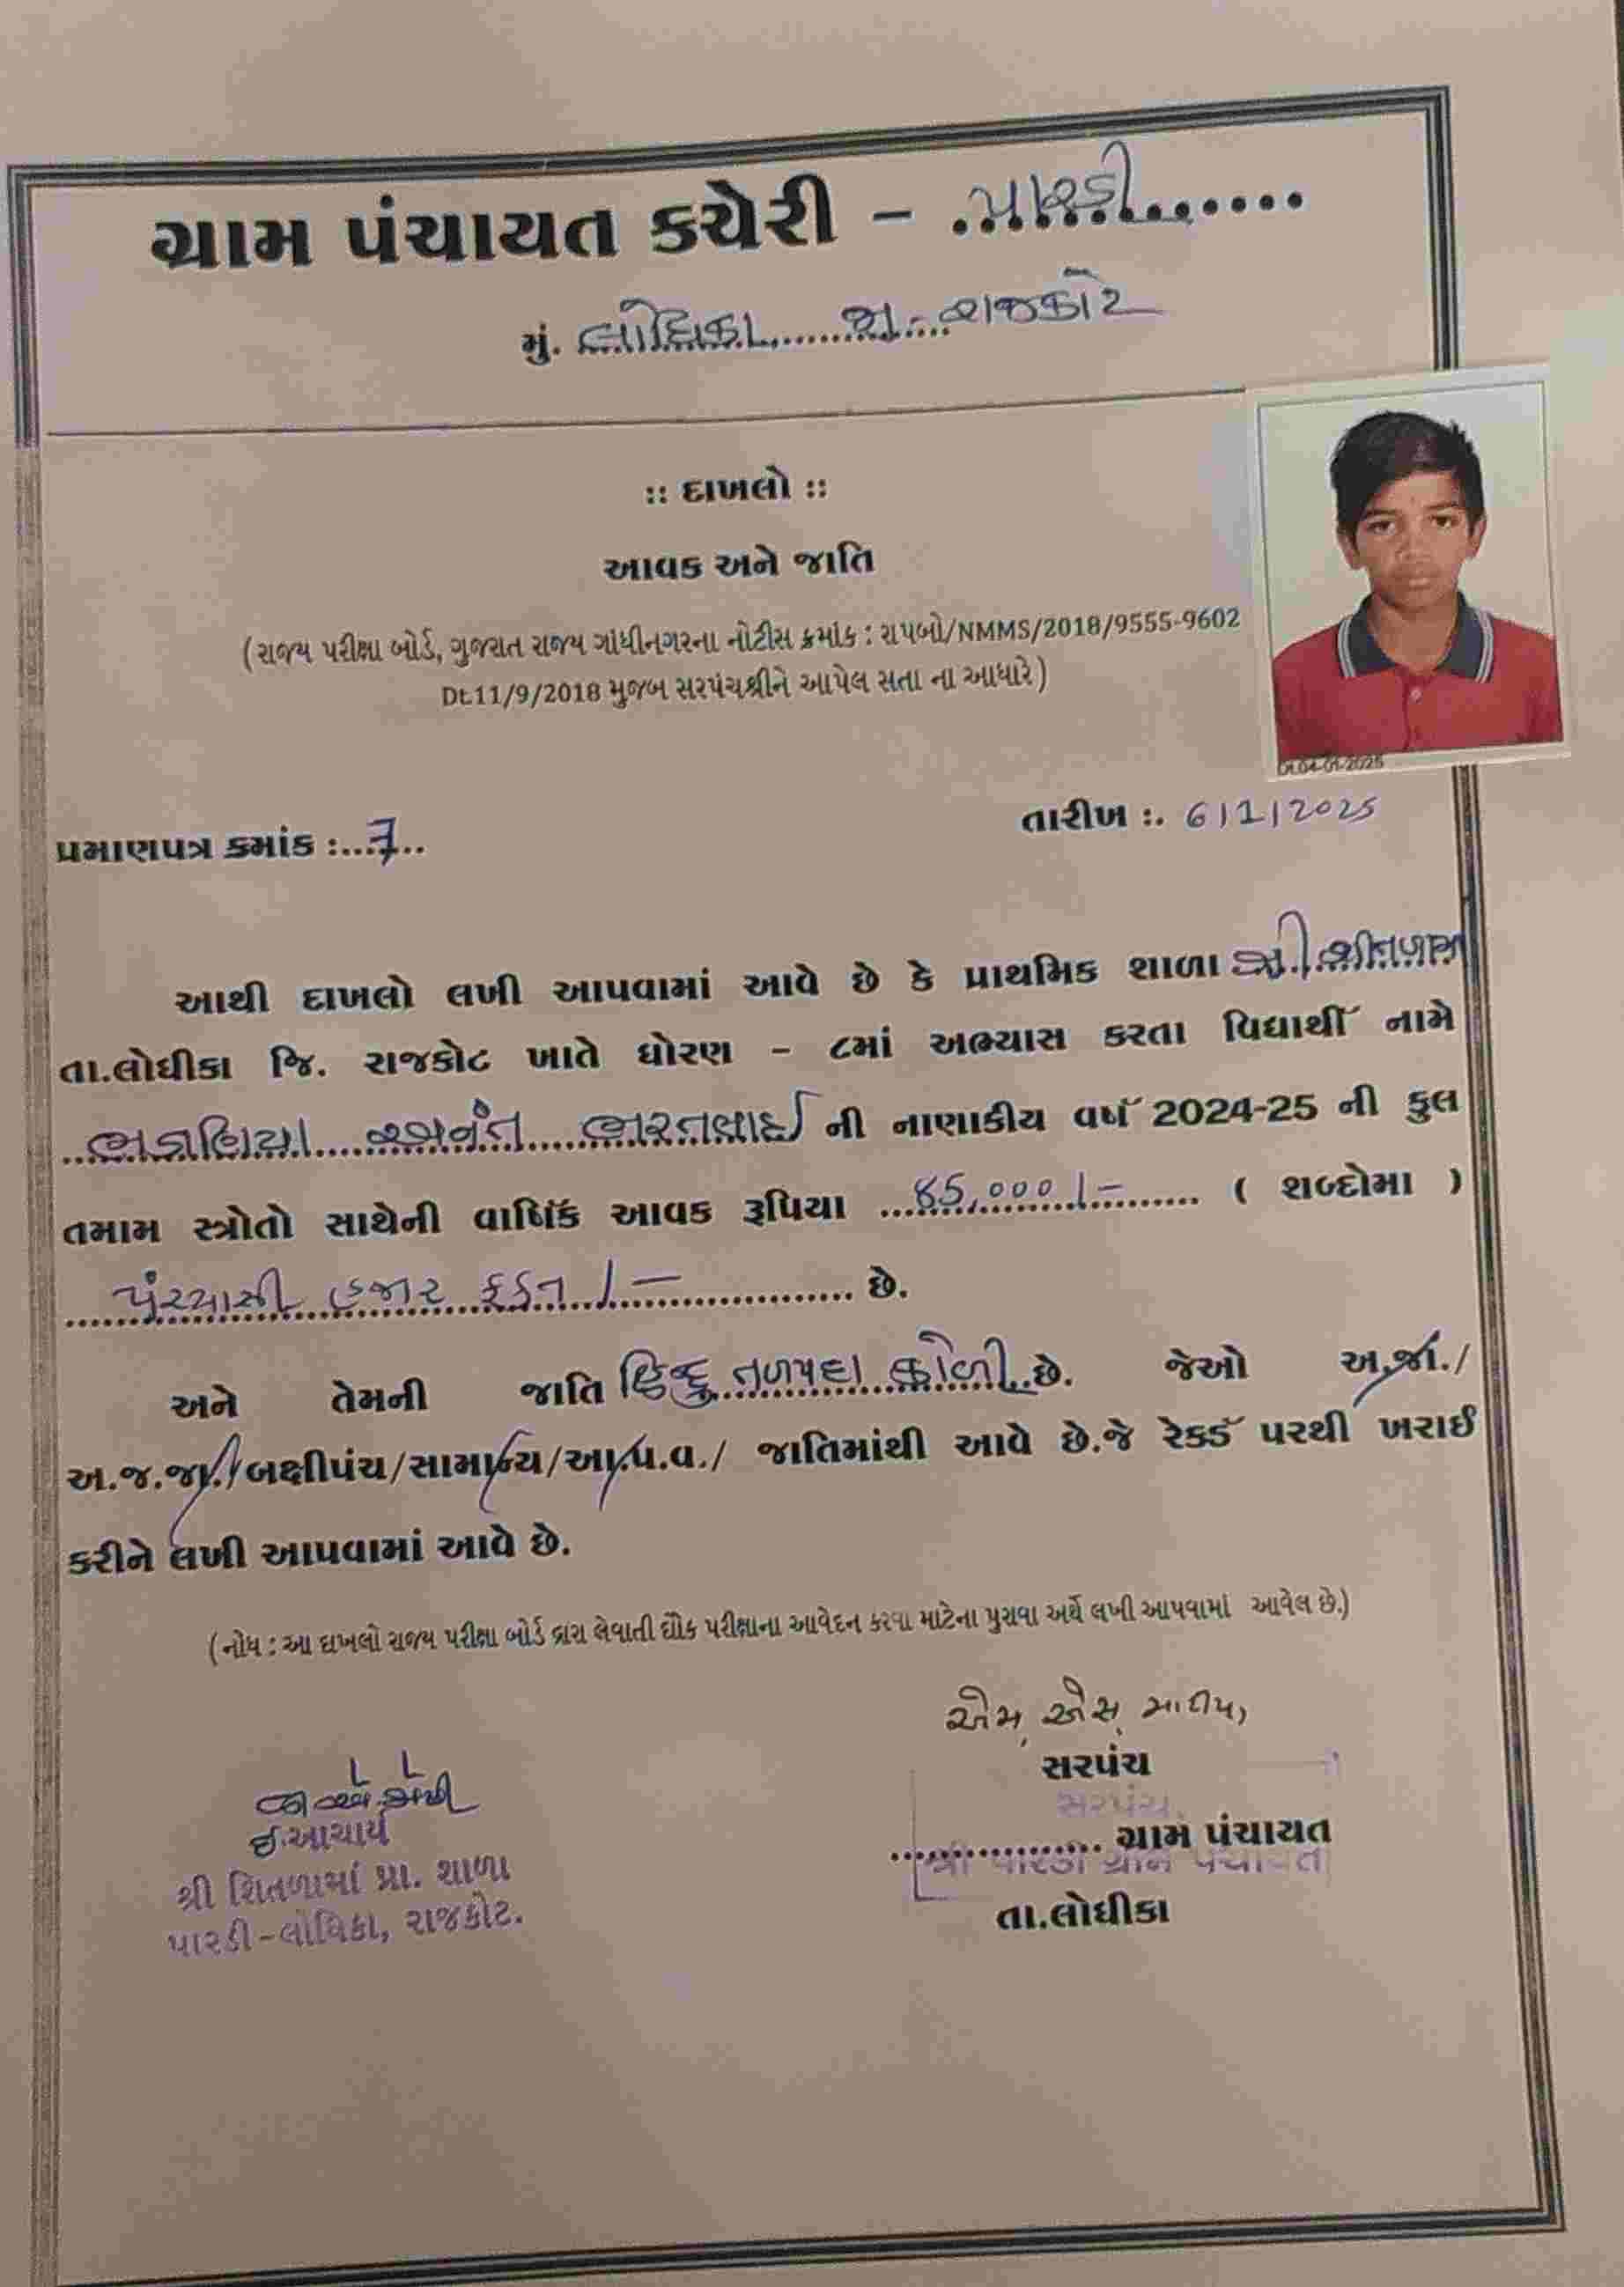 ગ્રામ પંચાયત કચેરી - પારડી
મું. લોધિકા જી. રાજકોટ
:: દાખલો ::
આવક અને જાતિ
(રાજ્ય પરીક્ષા બોર્ડ, ગુજરાત રાજ્ય ગાંધીનગરના નોટીસ ક્રમાંક : રાપબો/NMMS/2018/9555-9602
Dt.11/9/2018 મુજબ સરપંચશ્રીને આપેલ સતા ના આધારે)
Dt.04-01-2025
પ્રમાણપત્ર ક્રમાંક :...7.. તારીખ :. 6/1/2025
આથી દાખલો લખી આપવામાં આવે છે કે પ્રાથમિક શાળા શ્રી શીતળામા
તા.લોધીકા જિ. રાજકોટ ખાતે ધોરણ - ૮માં અભ્યાસ કરતા વિદ્યાર્થી નામે
ભરતભાઈ ની નાણાકીય વર્ષ 2024-25 ની કુલ
તમામ સ્ત્રોતો સાથેની વાર્ષિક આવક રૂપિયા 85,000/- ( શબ્દોમા )
પંચ્યાસી હજાર ફકત /- છે.
અને તેમની જાતિ હિન્દુ તળપદા કોળી છે. જેઓ અ.જા./
અ.જ.જા./બક્ષીપંચ/સામાન્ય/આ.પ.વ./ જાતિમાંથી આવે છે.જે રેકર્ડ પરથી ખરાઈ
કરીને લખી આપવામાં આવે છે.
(નોધ : આ દાખલો રાજ્ય પરીક્ષા બોર્ડ દ્વારા લેવાતી ઉપરોક્ત પરીક્ષાના આવેદન કરવા માટેના પુરાવા અર્થે લખી આપવામાં આવેલ છે.)
એમ, એસ,
સરપંચ
સરપંચ
ગ્રામ પંચાયત
શ્રી પારડી ગ્રામ પંચાયત
તા.લોધીકા
ઈ.આચાર્ય
શ્રી શિતળામાં પ્રા. શાળા
પારડી-લોધિકા, રાજકોટ.